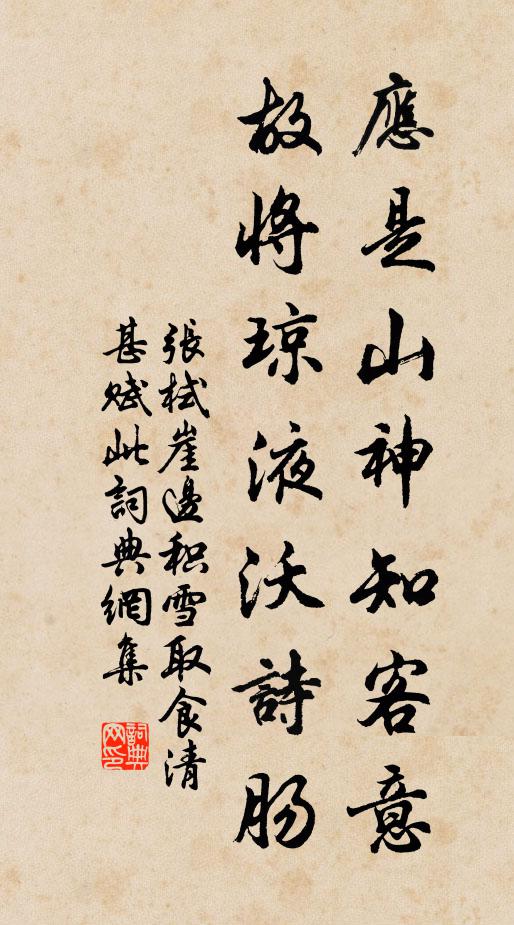 應是山神知客意
故將琼液沃詩肠
張栻崖邊积雪取食清
甚賦此詞典網集
詞典
网印